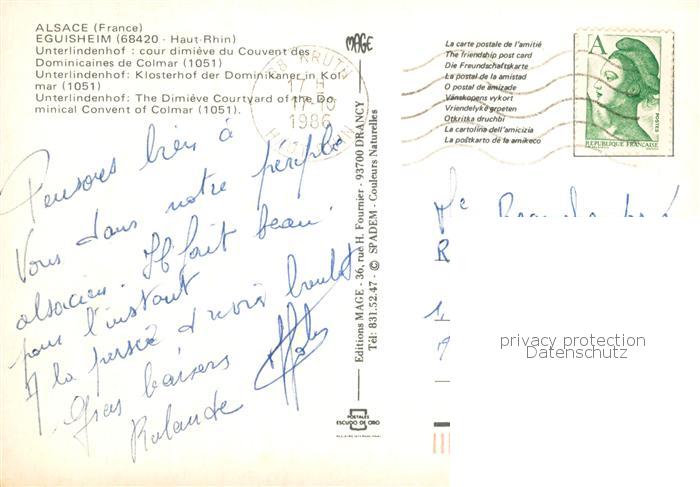 ALSACE (France)
EGUISHEIM (68420 - Haut-Rhin)
Unterlindenhof : cour dimiève du Couvent des
Dominicaines de Colmar (1051)
Unterlindenhof: Klosterhof der Dominikaner in Kol
mar (1051)
Unterlindenhof: The Dimiève Courtyard of the Do
minical Convent of Colmar (1051).
Pensons bien à
Vous dans notre périple
alsacien. Il fait beau
pour l'instant
A la pensée d'revoir
Gros baisers
Rolande
68 KRUTH
17 H
1986
HAUT RHIN
MAGE
Editions MAGE - 36, rue H. Fournier - 93700 DRANCY
Tél: 831.52.47 - © SPADEM - Couleurs Naturelles
POSTALES
ESCUDO DE ORO
La carte postale de l'amitié
The friendship post card
Die Freundschaftskarte
La postal de la amistad
O postal de amizade
Vänskapens vykort
Vriendelyke groeten
Otkritka druchbi
La cartolina dell'amicizia
La postkarto de la amikeco
A
POSTES
REPUBLIQUE FRANÇAISE
privacy protection
Datenschutz